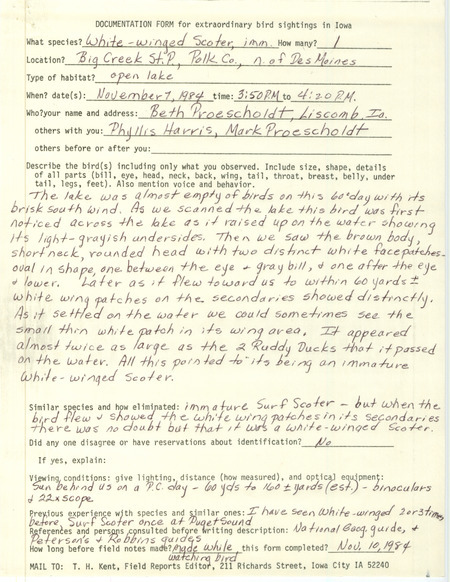 DOCUMENTATION FORM for extraordinary bird sightings in Iowa
What species? White-winged Scoter, imm. How many? 1
Location? Big Creek St. P., Polk Co., n. of Des Moines
Type of habitat? open lake
When? date(s): November 7, 1984 time: 3:50 P.M. to 4:20 P.M.
Who? your name and address: Beth Proescholdt, Liscomb, Ia.
others with you: Phyllis Harris, Mark Proescholdt
others before or after you:
Describe the bird(s) including only what you observed. Include size, shape, details
of all parts (bill, eye, head, neck, back, wing, tail, throat, breast, belly, under
tail, legs, feet). Also mention voice and behavior.
The lake was almost empty of birds on this 60° day with its
brisk south wind. As we scanned the lake this bird was first
noticed across the lake as it raised up on the water showing
its light-grayish undersides. Then we saw the brown body,
short neck, rounded head with two distinct white face patches-
oval in shape, one between the eye & gray bill, & one after the eye
& lower. Later as it flew toward us to within 60 yards ±
white wing patches on the secondaries showed distinctly.
As it settled on the water we could sometimes see the
small thin white patch in its wing area. It appeared
almost twice as large as the 2 Ruddy Ducks that it passed
on the water. All this pointed to its being an immature
White-winged Scoter.
Similar species and how eliminated: immature Surf Scoter - but when the
bird flew & showed the white wing patches in its secondaries
there was no doubt but that it was a White-winged Scoter.
Did any one disagree or have reservations about identification? No
If yes, explain:
Viewing conditions: give lighting, distance (how measured), and optical equipment:
Sun behind us on a P.C. day - 60 yds to 160 ± yards (est.) - binoculars
& 22x scope
Previous experience with species and similar ones: I have seen White-winged 2 or 3 times
before, Surf Scoter once at Puget Sound
References and persons consulted before writing description: National Geog. guide, &
Peterson's & Robbins guides
How long before field notes made? made while this form completed? Nov. 10, 1984
watching bird
MAIL TO: T. H. Kent, Field Reports Editor, 211 Richards Street, Iowa City IA 52240